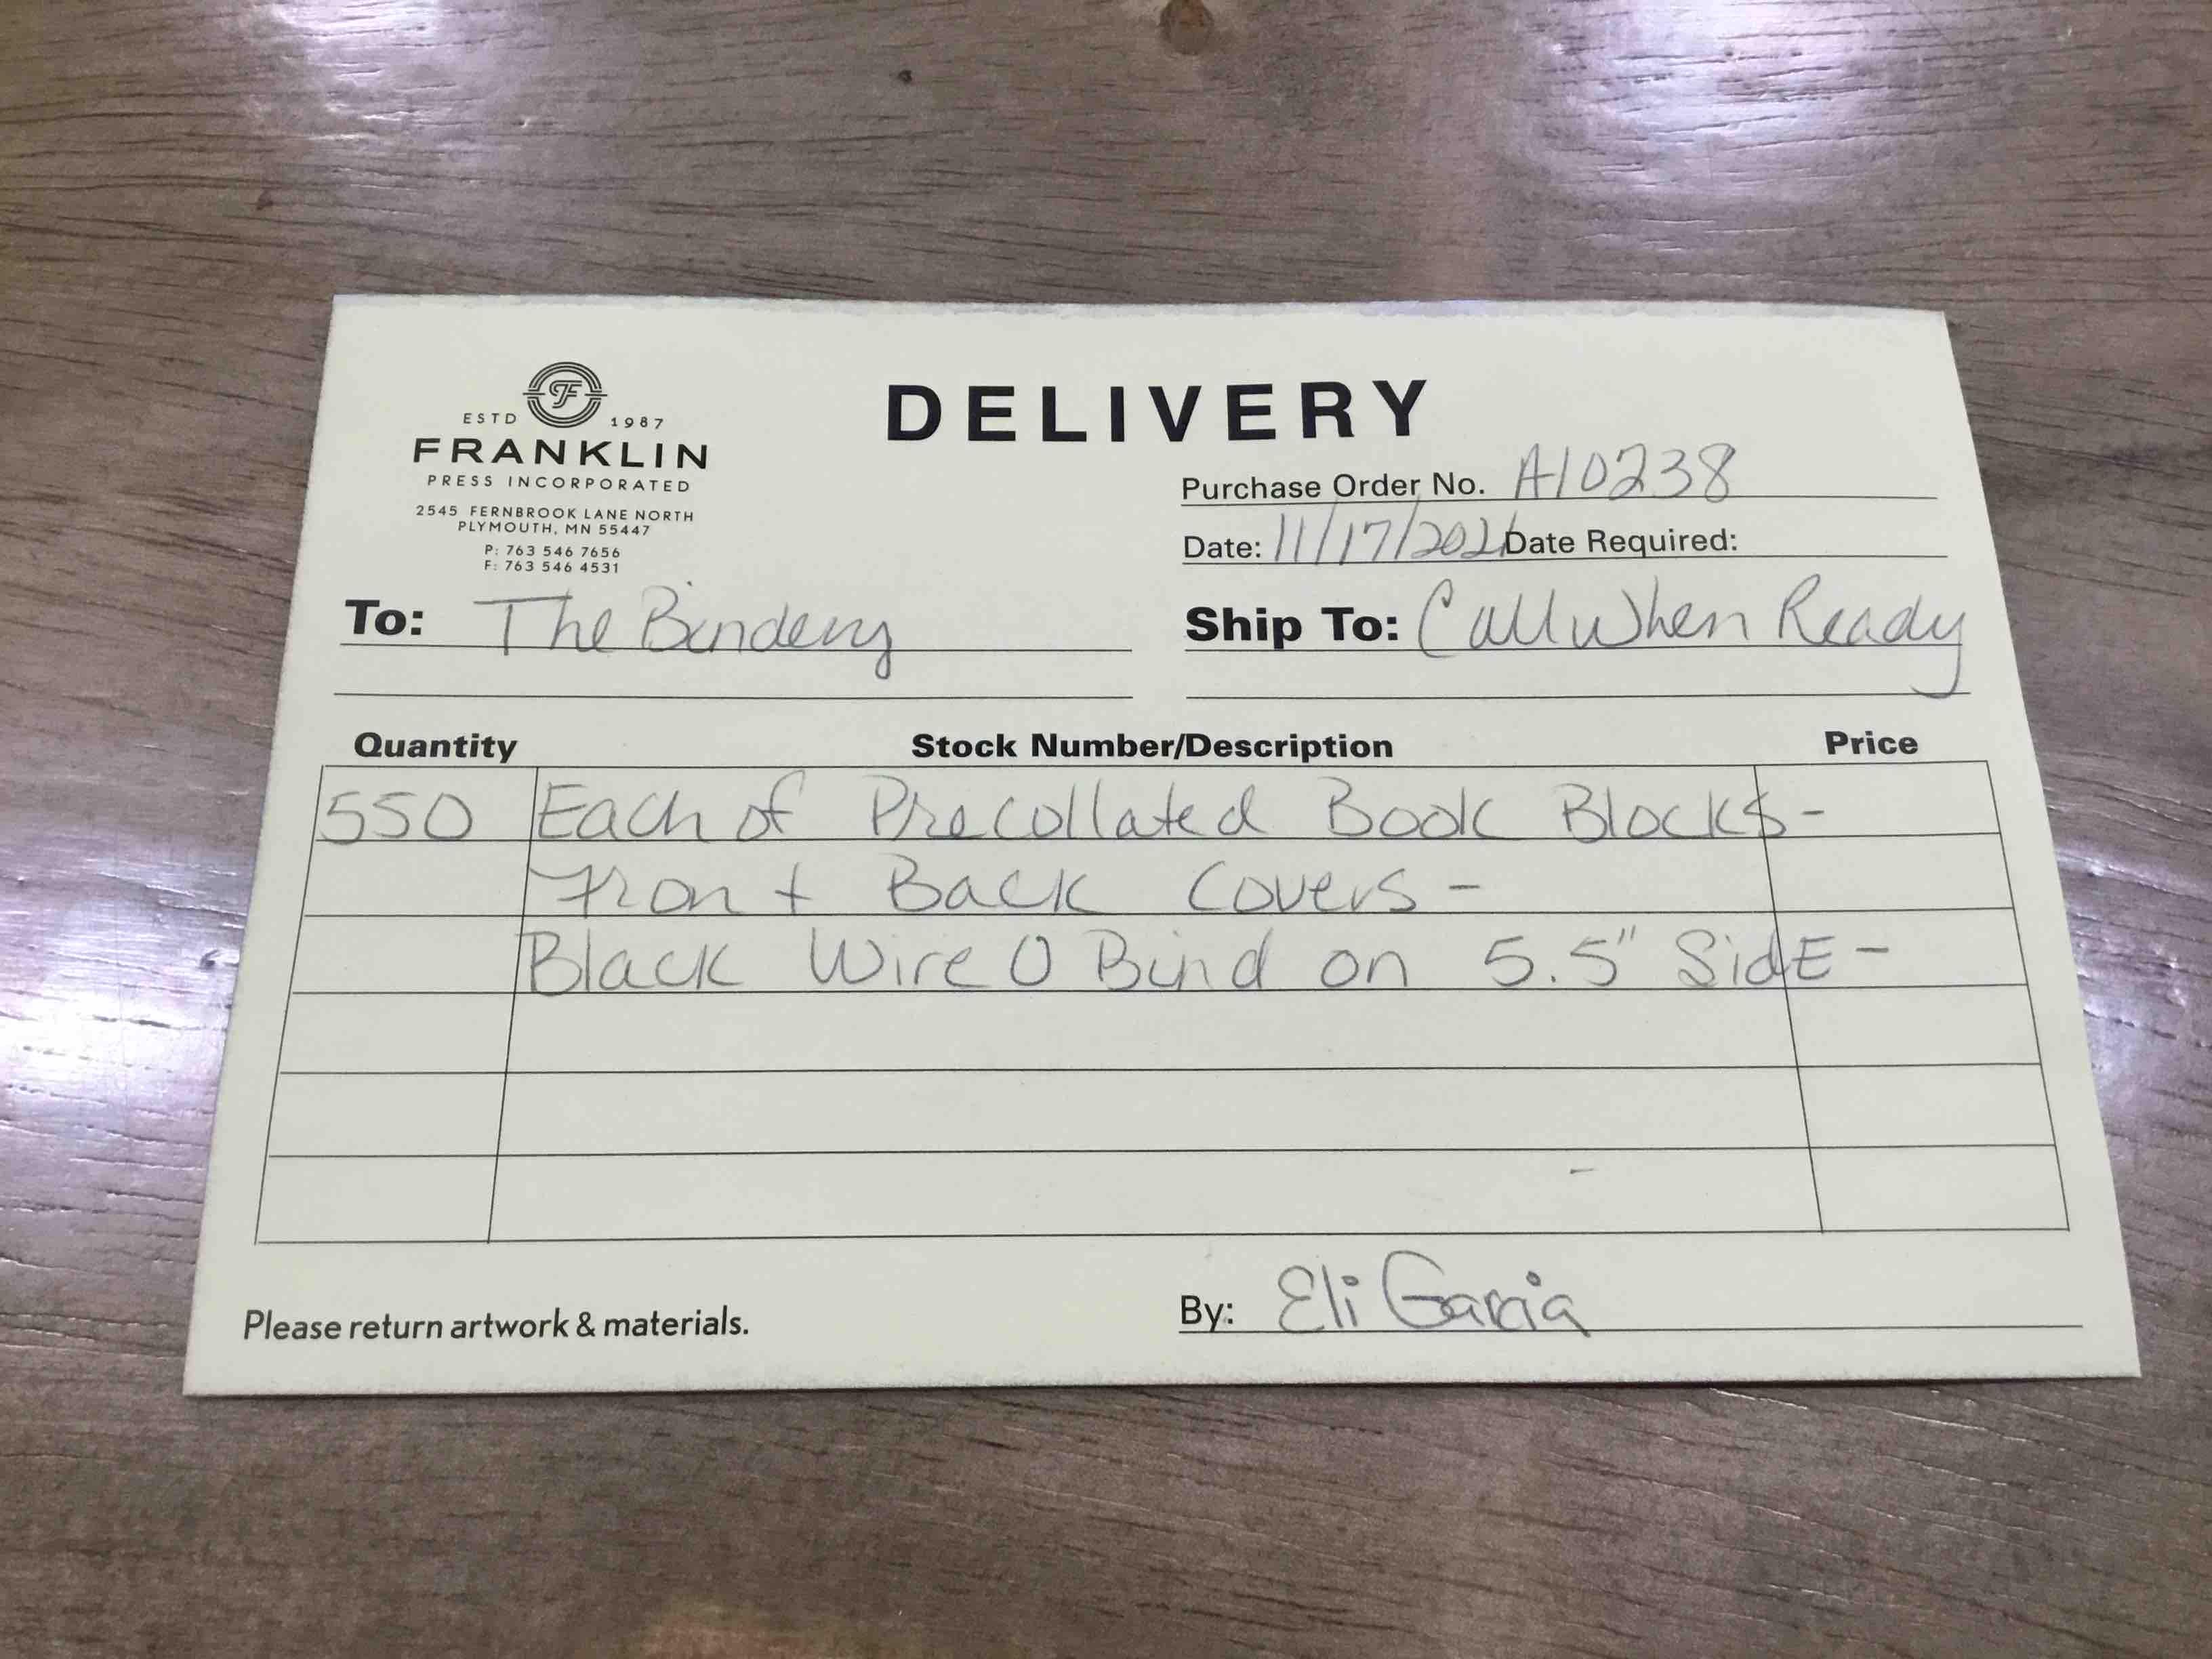 ESTD 1987
FRANKLIN
PRESS INCORPORATED
2545 FERNBROOK LANE NORTH
PLYMOUTH, MN 55447
P: 763 546 7656
F: 763 546 4531
DELIVERY
Purchase Order No. A10238
Date: 11/17/2021 Date Required:
To: The Bindery
Ship To: Call When Ready
Quantity Stock Number/Description Price
550 Each of Precollated Book Blocks-
Front Back Covers-
Black Wire O Bind on 5.5" SidE-
Please return artwork & materials.
By: Eli Garcia